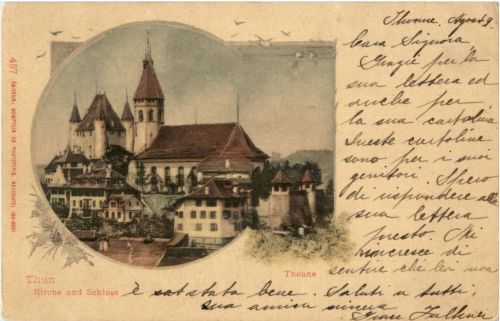 Thoune, Agosto 9
Cara Signora
Grazie per la
sua lettera ed
anche per
la sua cartolina
Queste cartoline
sono per i suoi
genitori Spero
di rispondere alla
sua lettera
presto Mi
rincresce di
sentire che lei non
è sat stata bene. Saluti a tutti;
sua amica sincera
Grace Faulkner
457
Thun
Thoune
Kirche und Schloss